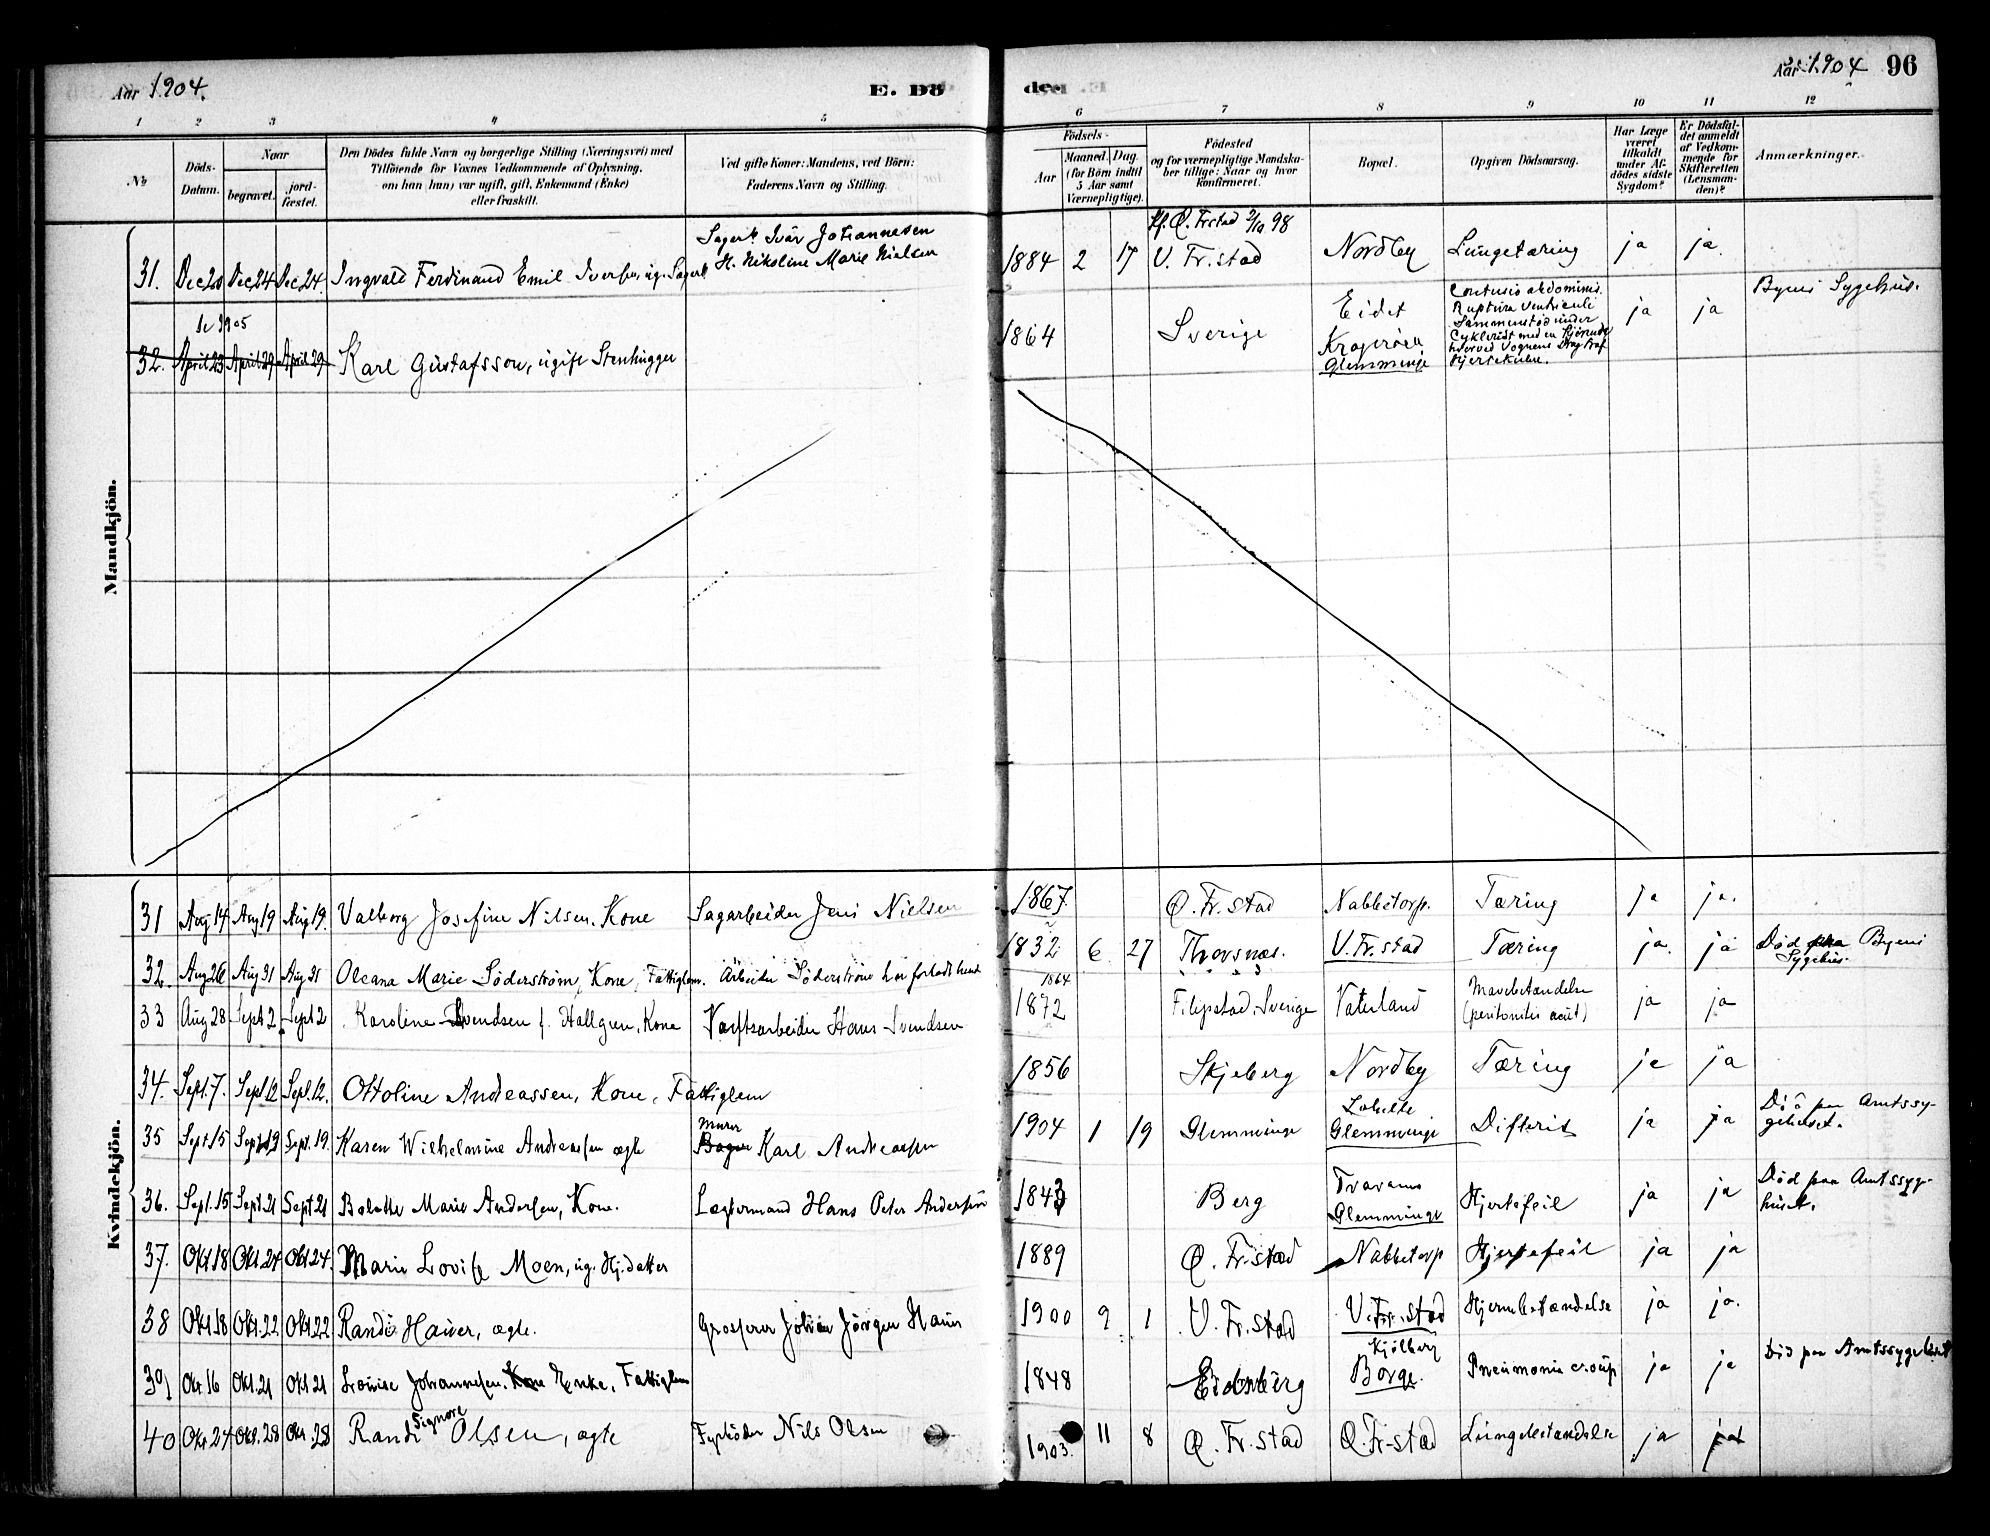 Aar 1904. E. Dö de. Aar 1904 96
1 2 3 4 5 6 7 8 9 10 11 12
No. Döds-Datum. Naar begravet. jord-fæstet. Den Dödes fulde Navn og borgerlige Stilling (Næringsvei) med Tilföiende for Voxnes Vedkommende af Oplysning, om han (hun) var ugift, gift, Enkemand (Enke) eller fraskilt. Ved gifte Koner: Mandens, ved Börn: Faderens Navn og Stilling. Födsels- Aar Maaned. Dag. (for Börn indtil 5 Aar samt Værnepligtige). Födested og for værnepligtige Mandskaber tillige: Naar og hvor konfirmeret. Bopæl. Opgiven Dödsaarsag. Har Læge været tilkaldt under Afdödes sidste Sygdom? Er Dödsfaldet anmeldt af Vedkommende for Skifteretten (Lensmanden)? Anmærkninger.
Mandkjön.
Sagarb. Ivar Johannesen Kf. Ö. Fr.stad 2/10 98
31. Dec 20 Dec 24 Dec 24. Ingvald Ferdinand Emil Iversen, ug. Sagarb H. Nikoline Marie Nielsen 1884 2 17 V. Fr.stad Nordby Lungetæring ja ja.
Se 1905
32. April 23 April 29 April 29 Karl Gustafsson, ugift Stenhugger 1864 Sverige Eidet Krageröen Glemminge Contusio abdominis. Ruptura Ventriculi Sammenstöd under Cykleridt med en Kjörende hvorved Vognens Drag traf Hjertekulen. ja ja Byens Sygehus.
Kvindekjön.
31 Aug 14 Aug 19 Aug 19. Valborg Josefine Nilsen. Kone Sagarbeider Jens Nielsen 1867 Ö. Fr.stad Nabbetorp. Tæring ja ja.
32. Aug 26 Aug 31 Aug 31 Oleana Marie Söderström, Kone, Fattiglem. Arbeider Söderström har forladt hende 1832 6 27 Thorsnæs. V. Fr.stad Tæring ja. ja Död Byens Sygehus.
33 Aug 28 Sept 2 Sept 2 Karoline Svendsen f. Hallgren, Kone Værftsarbeider Hans Svendsen 1864 1872 Filipstad, Sverige Vaterland Mavebetændelse (peritonitis acut) ja ja
34. Sept. 7. Sept 12 Sept. 12. Ottoline Andreassen, Kone, Fattiglem 1856 Skjeberg Nordby Tæring ja ja
35 Sept. 15 Sept 19 Sept. 19. Karen Wilhelmine Andreassen ægte Murer Karl Andreassen 1904 1 19 Glemminge Glemminge Difterit ja ja Död paa Amtssygehuset.
36. Sept. 15 Sept 21 Sept 21 Bolette Marie Andersen, Kone. Lægtermand Hans Peter Andersen 1843 Berg Traraens Glemminge Hjertefeil ja ja Död paa Amtssyghuset.
37. Okt 18 Okt. 24 Okt 24. Marie Lovise Moen, ug. Hj. datter 1889 Ö. Fr.stad Nabbetorp Hjertefeil ja ja
38 Okt 18 Okt. 22 Okt 22 Randi Hauer, ægte. Grosserer Johan Jörgen Hauer 1900 9 1 V. Fr.stad V. Fr.stad Hjernebetændelse ja ja.
39 Okt. 16 Okt. 21 Okt 21 Lovise Johannesen. Kone Enke, Fattiglem 1848 Eidsberg Kjölberg Borge. Pneumonia croup ja ja Död paa Amtssygehuset
40 Okt 24 Okt. 28 Okt. 28 Randi Signore Olsen, ægte Fyrböder Nils Olsen 1903. 11 8 Ö. Fr.stad Ö. Fr-stad Lungebetændelse ja ja